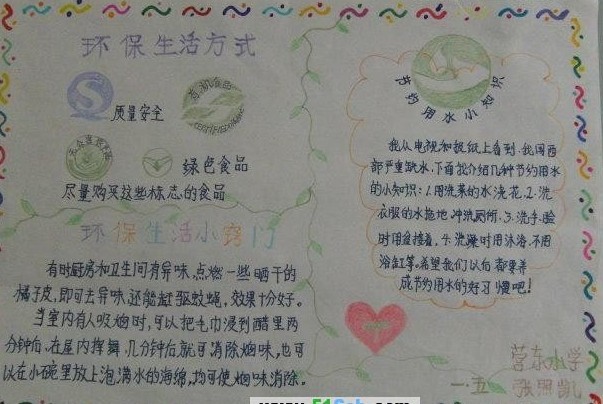 环保生活方式
质量安全
绿色食品
尽量购买这些标志的食品
环保生活小窍门
有时厨房和卫生间有异味,点燃一些晒干的
橘子皮,即可去异味,还能赶驱蚊蝇,效果十分好。
当室内有人吸烟时,可以把毛巾浸到醋里两
分钟后,在屋内挥舞,几分钟后就可消除烟味,也可
以在小碗里放上泡满水的海绵,均可使烟味消除。
节约用水小知识
我从电视和报纸上看到,我国西
部严重缺水,下面我介绍几种节约用水
的小知识:1.用洗菜的水浇花,2.洗
衣服的水拖地冲洗厕所,3.洗手、脸
时用盆接着,4.洗澡时用沐浴,不用
浴缸等。希望我们以后都要养
成节约用水的好习惯吧!
营东小学
一·五 张照凯